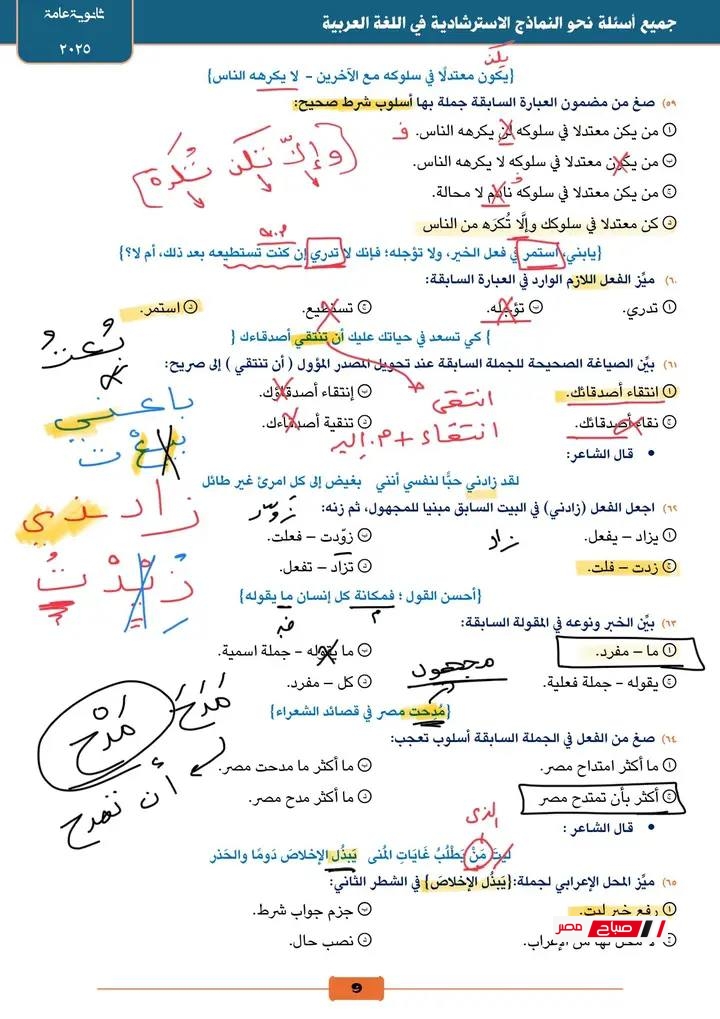 جميع أسئلة نحو النماذج الاسترشادية في اللغة العربية
ثانوية عامة
٢٠٢٥
يكن
{يكون معتدلًا في سلوكه مع الآخرين – لا يكرهه الناس}
(٥٩ صغ من مضمون العبارة السابقة جملة بها أسلوب شرط صحيح:
أ من يكن معتدلا في سلوكه لن يكرهه الناس. ف
ب من يكون معتدلا في سلوكه لا يكرهه الناس.
ج من يكن معتدلا في سلوكه نادم لا محالة.
د كن معتدلا في سلوكك وإلَّا تُكرَه من الناس
(وإلّا تكن تُكره)
{يابني، استمر في فعل الخير، ولا تؤجله؛ فإنك لا تدري إن كنت تستطيعه بعد ذلك، أم لا؟}
(٦٠ ميِّز الفعل اللازم الوارد في العبارة السابقة:
أ تدري. ب تؤجله. ج تستطيع. د استمر.
{ كي تسعد في حياتك عليك أن تنتقي أصدقاءك }
(٦١ بيِّن الصياغة الصحيحة للجملة السابقة عند تحويل المصدر المؤول ( أن تنتقي ) إلى صريح:
أ انتقاء أصدقائك. ب إنتقاء أصدقاؤك.
ج نقاء أصدقائك. د تنقية أصدقاءك.
انتقى
انتقاء + م. إليه
باعني
• قال الشاعر:
لقد زادني حبًّا لنفسي أنني بغيض إلى كل امرئ غير طائل
(٦٢ اجعل الفعل (زادني) في البيت السابق مبنيا للمجهول، ثم زنه:
أ يزاد – يفعل. ب زوّدت – فعلت.
ج زدت – فلت. د تزاد – تفعل.
زاد
زادني
{أحسن القول ؛ فمكانة كل إنسان ما يقوله}
(٦٣ بيِّن الخبر ونوعه في المقولة السابقة:
أ ما – مفرد. ب ما يقوله – جملة اسمية.
ج يقوله – جملة فعلية. د كل – مفرد.
مجهول
{مُدِحت مصر في قصائد الشعراء}
(٦٤ صغ من الفعل في الجملة السابقة أسلوب تعجب:
أ ما أكثر امتداح مصر. ب ما أكثر ما مدحت مصر.
ج أكثر بأن تمتدح مصر د ما أكثر مدح مصر.
مَدَحَ
مَدْح
أن تمدح
• قال الشاعر :
الذى
ليتَ مَنْ يَطْلُبُ غَايَاتِ المُنى يَبذُل الإخلاصَ دَومًا والحَذر
(٦٥ ميِّز المحل الإعرابي لجملة:{يَبذُل الإخلاصَ} في الشطر الثاني:
أ رفع خبر ليت. ب جزم جواب شرط.
ج لا محل لها من الإعراب. د نصب حال.
صباح مصر
9